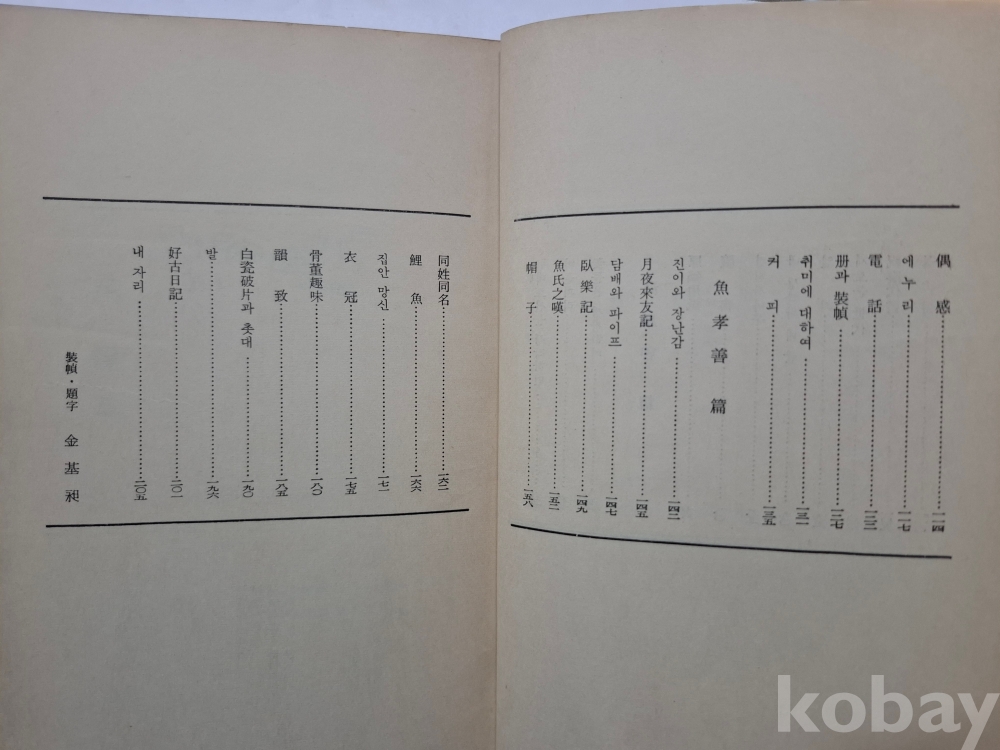 偶感 一一四
에누리 一一七
電話 一二二
册과 裝幀 一二七
취미에 대하여 一三一
커피 一三五
魚孝善篇
진이와 장난감 一四二
月夜來友記 一四五
담배와 파이프 一四七
臥樂記 一四九
魚氏之嘆 一五二
帽子 一五八
同姓同名 一六二
鯉魚 一六六
집안 망신 一七一
衣冠 一七五
骨董趣味 一八〇
韻致 一八五
白瓷破片과 촛대 一九〇
발 一九六
好古日記 二〇一
내 자리 二〇五
裝幀・題字 金基昶
kobay